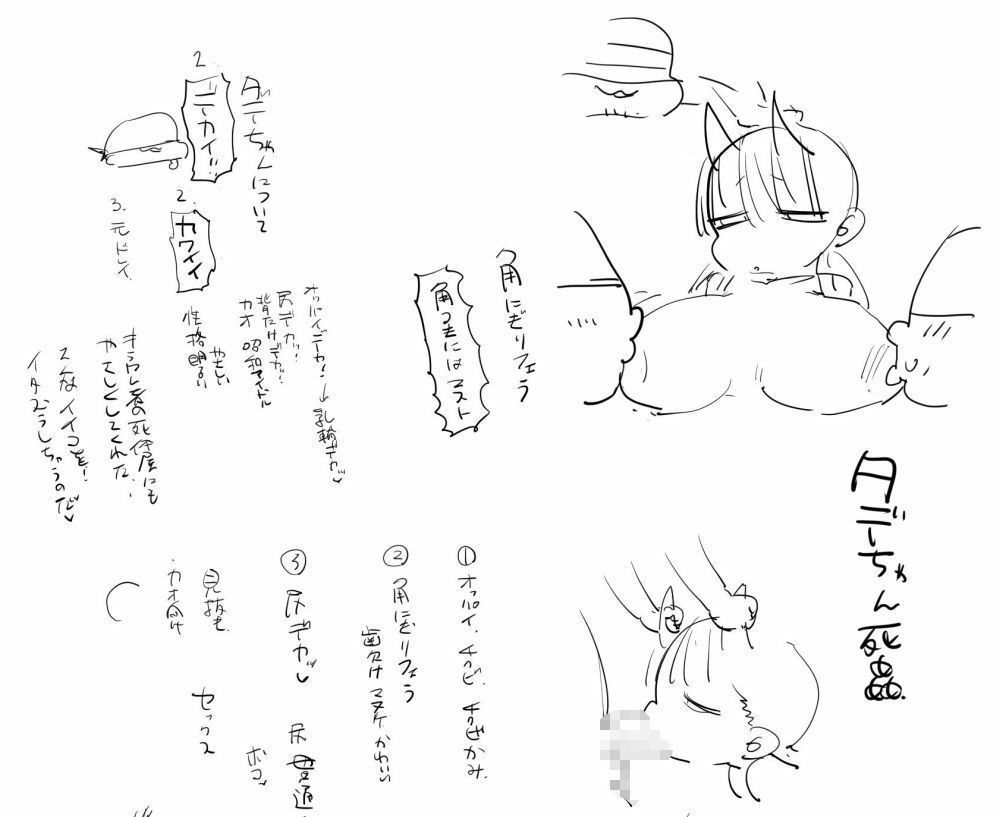 タデーちゃん死蟲
角にぎりフェラ
角つきにはマスト
タデーちゃんについて
2.
デカイ!!
2.
カワイイ
3. 元ドレイ
オッパイデカ!→乳輪デカッ♡
尻デカッ!
背だけデカッ!
カオ 昭和アイドル
やさしい
性格明るい
キラワレ者の死体屋にも
やさしくしてくれた!
そんなイイコを!
イタズラしちゃうのだ♡
① オッパイ、チクビ、
② 角にぎりフェラ
歯欠けマヌケかわいい
③ 尻デカッ♡
尻
普通
ボコ♡
見抜き
セックス
・カオ向け